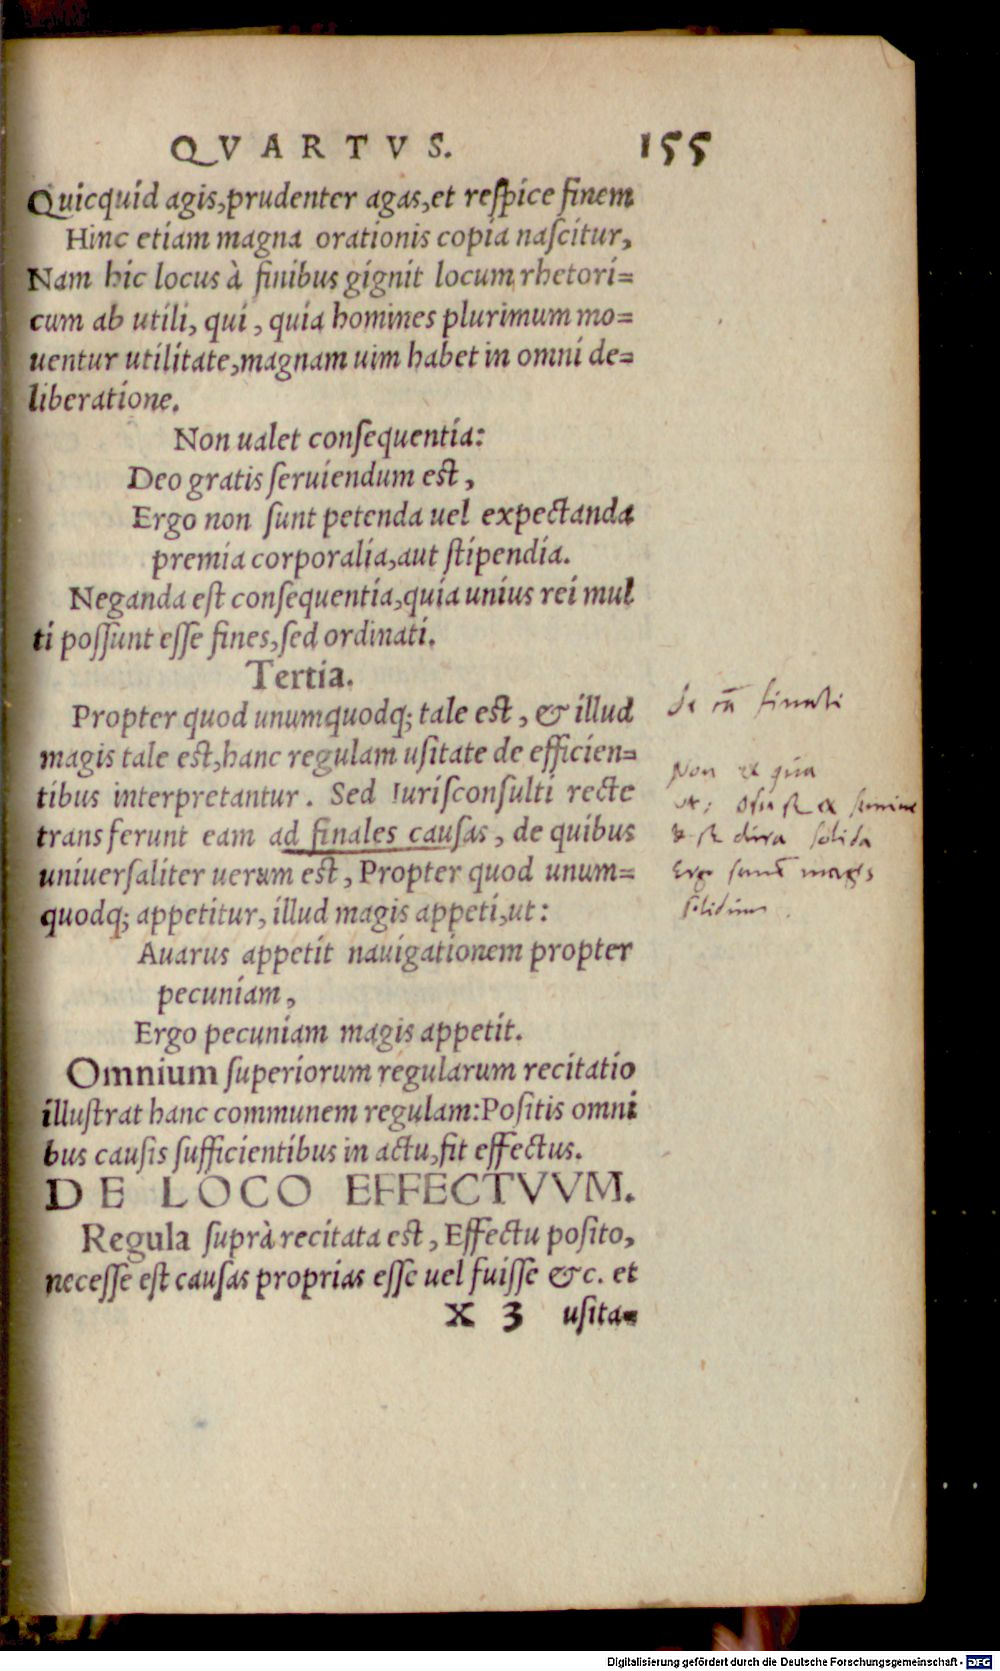 QVARTVS. 155
Quicquid agis, prudenter agas, et respice finem
Hinc etiam magna orationis copia nascitur,
Nam hic locus à finibus gignit locum rhetori=
cum ab utili, qui, quia homines plurimum mo=
uentur utilitate, magnam uim habet in omni de=
liberatione.
Non ualet consequentia:
Deo gratis seruiendum est,
Ergo non sunt petenda uel expectanda
premia corporalia, aut stipendia.
Neganda est consequentia, quia unius rei mul
ti possunt esse fines, sed ordinati.
Tertia.
Propter quod unumquodq; tale est, & illud
magis tale est, hanc regulam usitate de efficien=
tibus interpretantur. Sed Iurisconsulti recte
transferunt eam ad finales causas, de quibus
uniuersaliter uerum est, Propter quod unum=
quodq; appetitur, illud magis appeti, ut:
Auarus appetit nauigationem propter
pecuniam,
Ergo pecuniam magis appetit.
Omnium superiorum regularum recitatio
illustrat hanc communem regulam: Positis omni
bus causis sufficientibus in actu, fit effectus.
DE LOCO EFFECTVVM.
Regula suprà recitata est, Effectu posito,
necesse est causas proprias esse uel fuisse &c. et
X 3 usita=
finali
Non
solida
Ergo magis
Digitalisierung gefördert durch die Deutsche Forschungsgemeinschaft - DFG